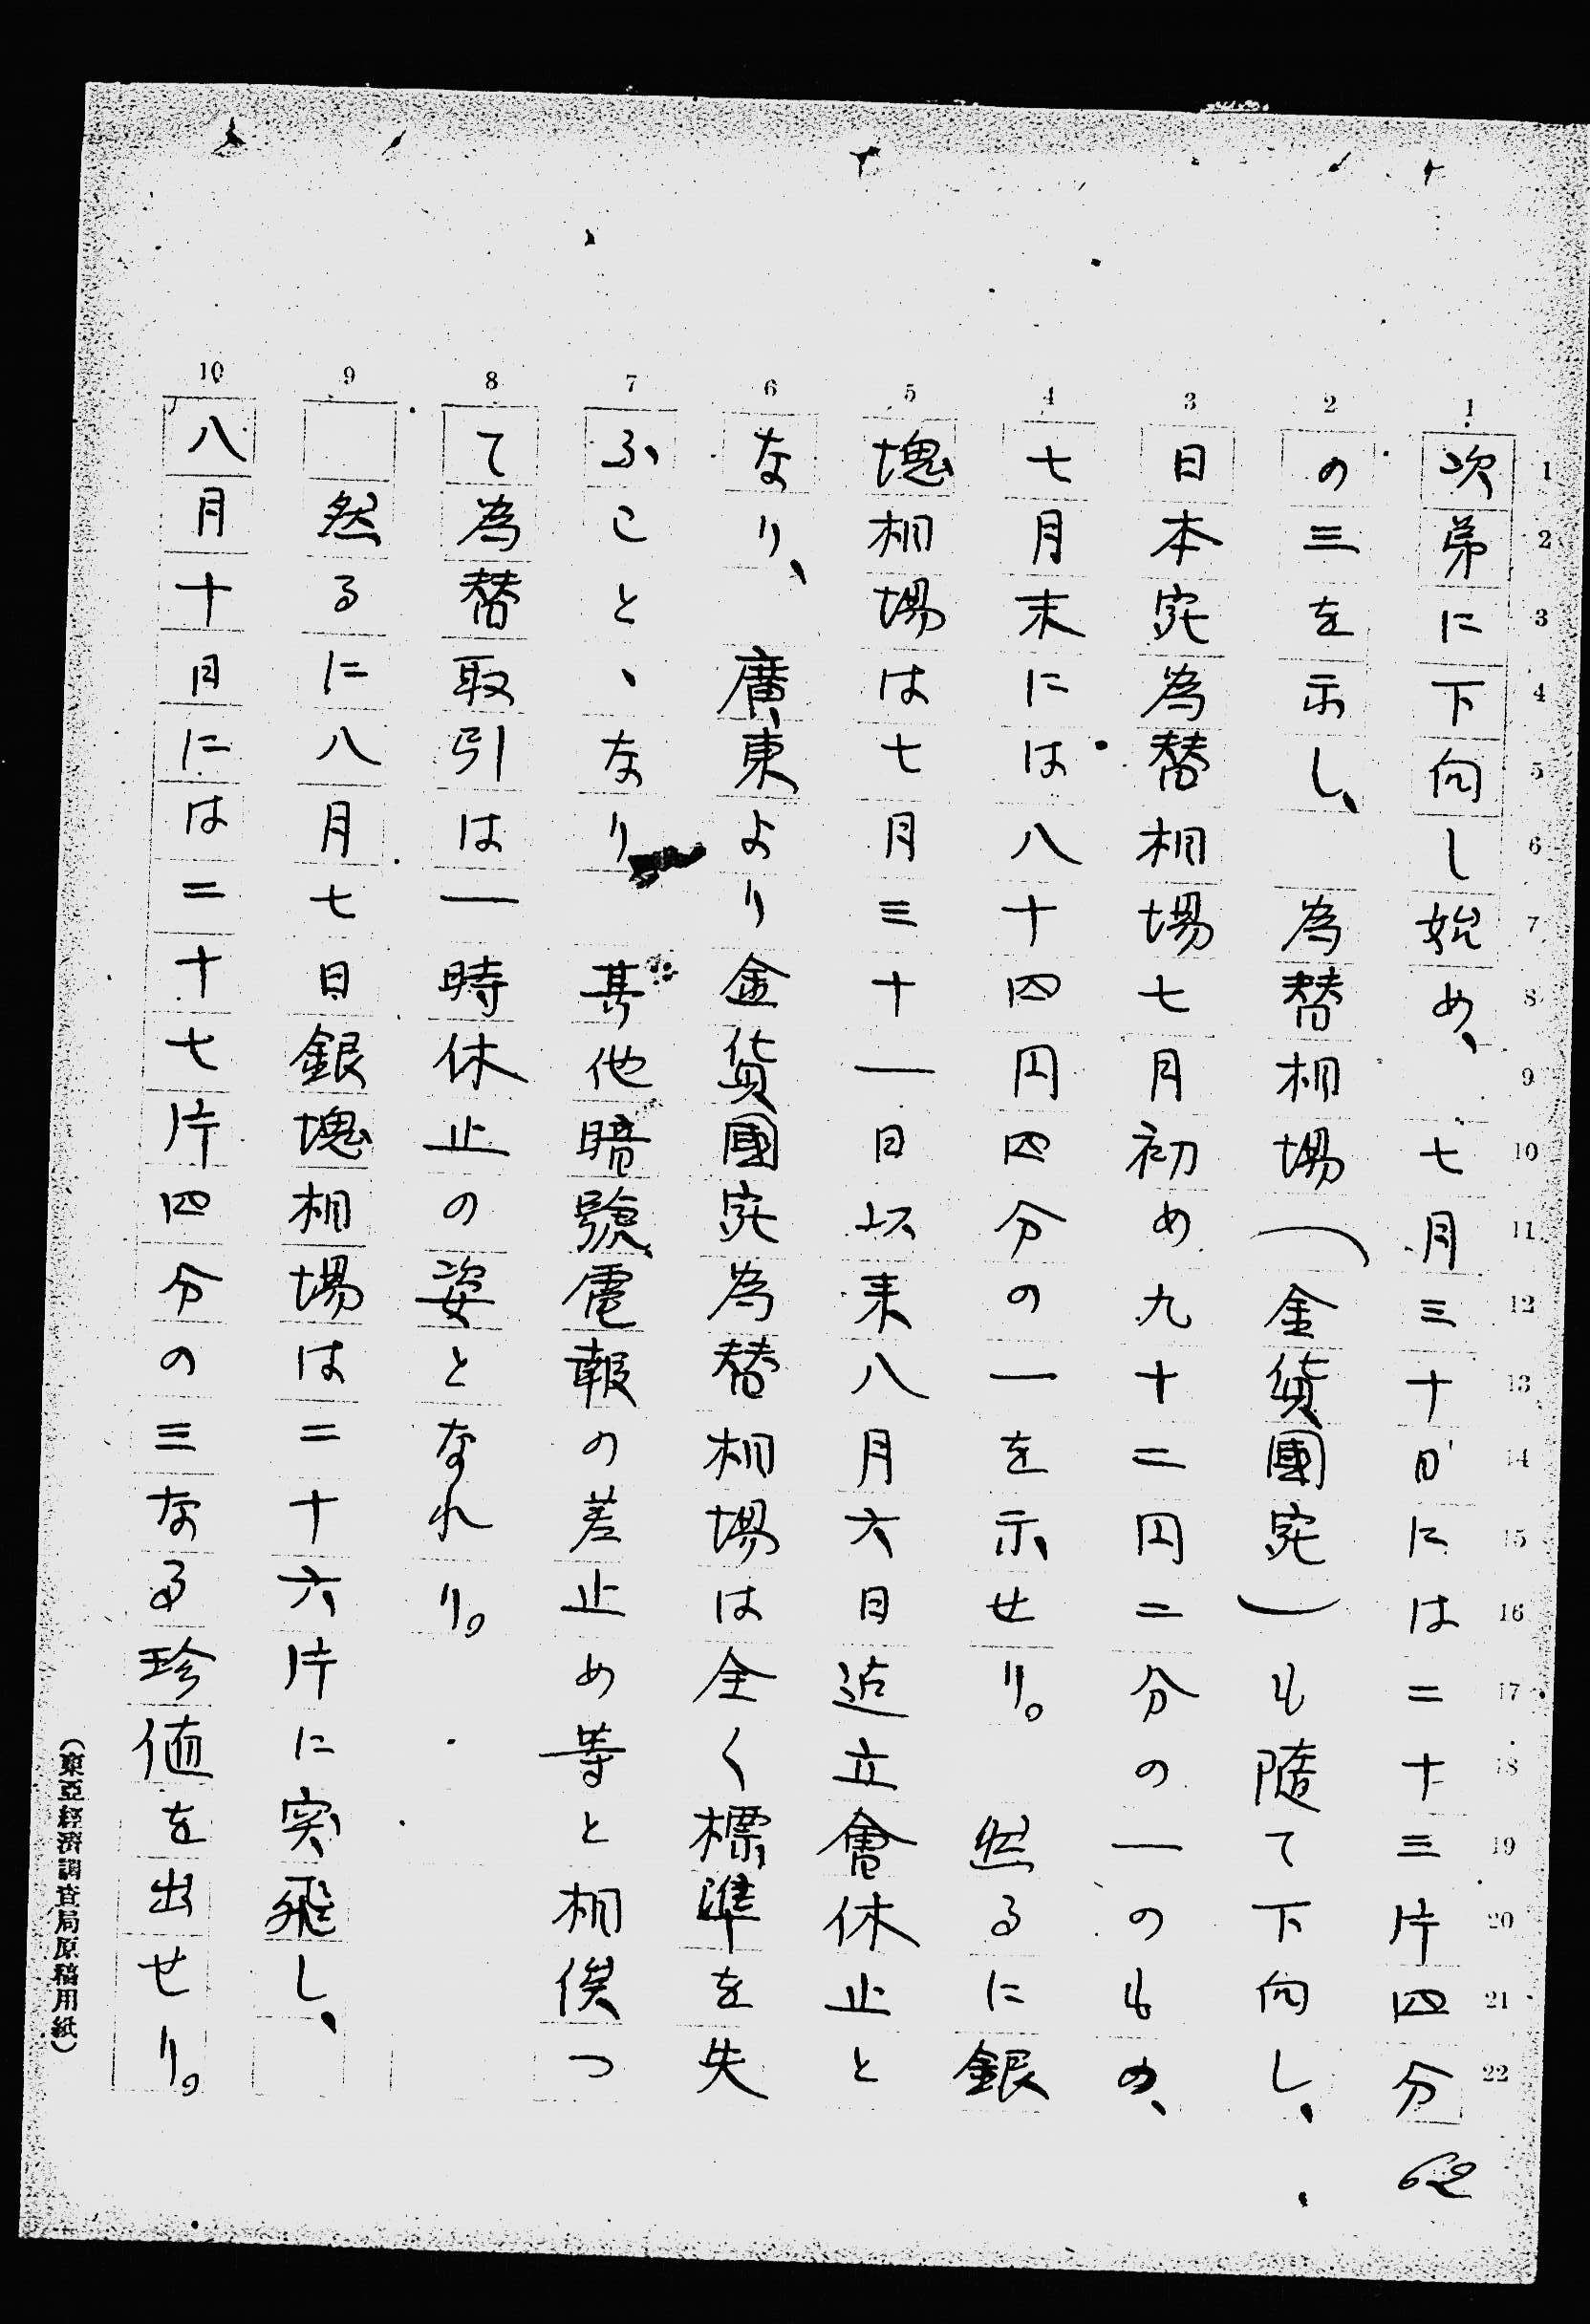 次第に下向し始め、七月三十日には二十三片四分
の三を示し、為替相場（金貨國宛）も隨て下向し、
日本宛為替相場七月初め九十二円二分の一のもの、
七月末には八十四円四分の一を示せり。然るに銀
塊相場は七月三十一日以来八月六日迄立會休止と
なり、廣東より金貨國宛為替相場は全く標準を失
ふこと、なり 其他暗號電報の差止め等と相俟つ
て為替取引は一時休止の姿となれり。
然るに八月七日銀塊相場は二十六片に突飛し、
八月十日には二十七片四分の三なる珍値を出せり。
62
1 2 3 4 5 6 7 8 9 10
1 2 3 4 5 6 7 8 9 10 11 12 13 14 15 16 17 18 19 20 21 22
（東亞經濟調査局原稿用紙）